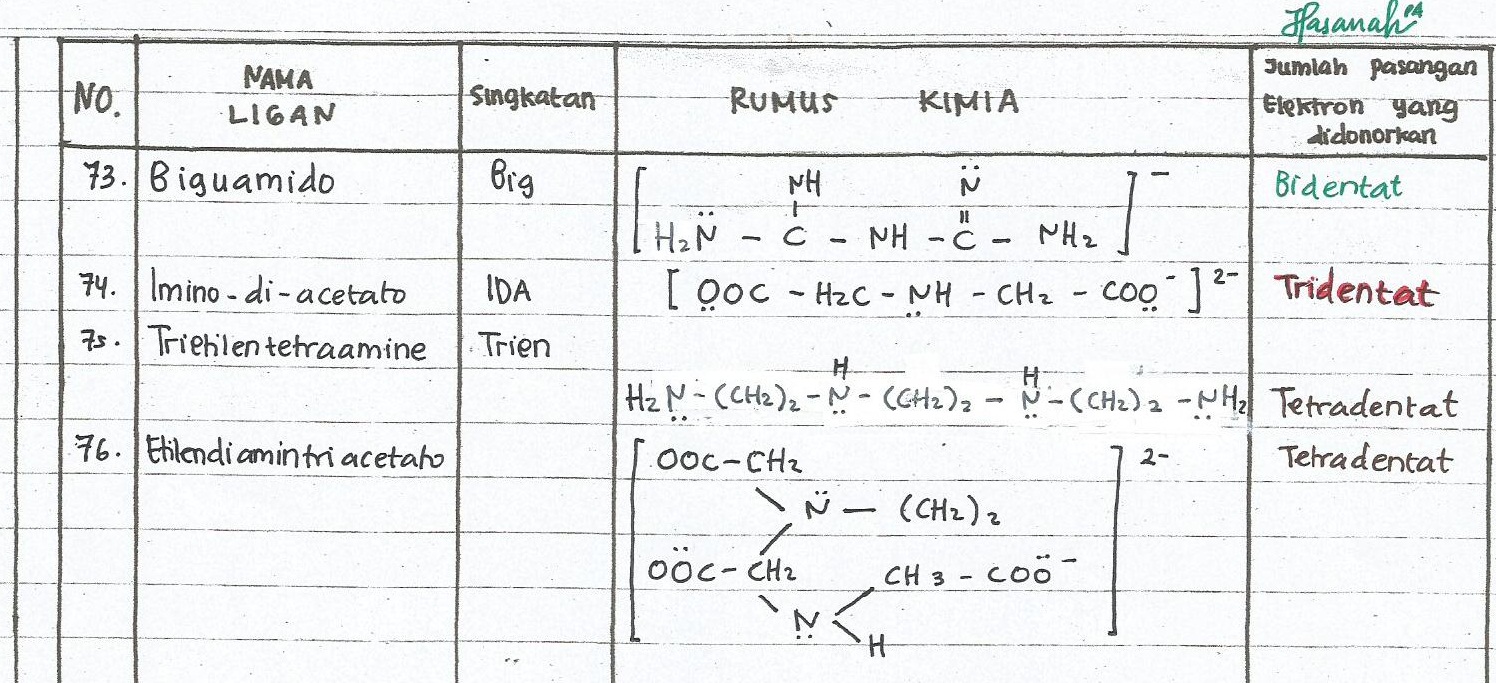 Hasanah PA
NO.
NAMA
LIGAN
Singkatan
RUMUS KIMIA
Jumlah pasangan
Elektron yang
didonorkan
73. Biguamido Big
NH N̈
[H₂N̈ - C - NH - C - NH₂]⁻
Bidentat
74. Imino-di-acetato IDA [OOC - H₂C - NH - CH₂ - COO⁻]²⁻ Tridentat
75. Triehilentetraamine Trien
H H
H₂N - (CH₂)₂ - N - (CH₂)₂ - N - (CH₂)₂ - NH₂ Tetradentat
76. Etilendiamintriacetato OOC-CH₂ 2- Tetradentat
N̈ - (CH₂)₂
OÖC - CH₂ CH3 - COÖ⁻
N
H